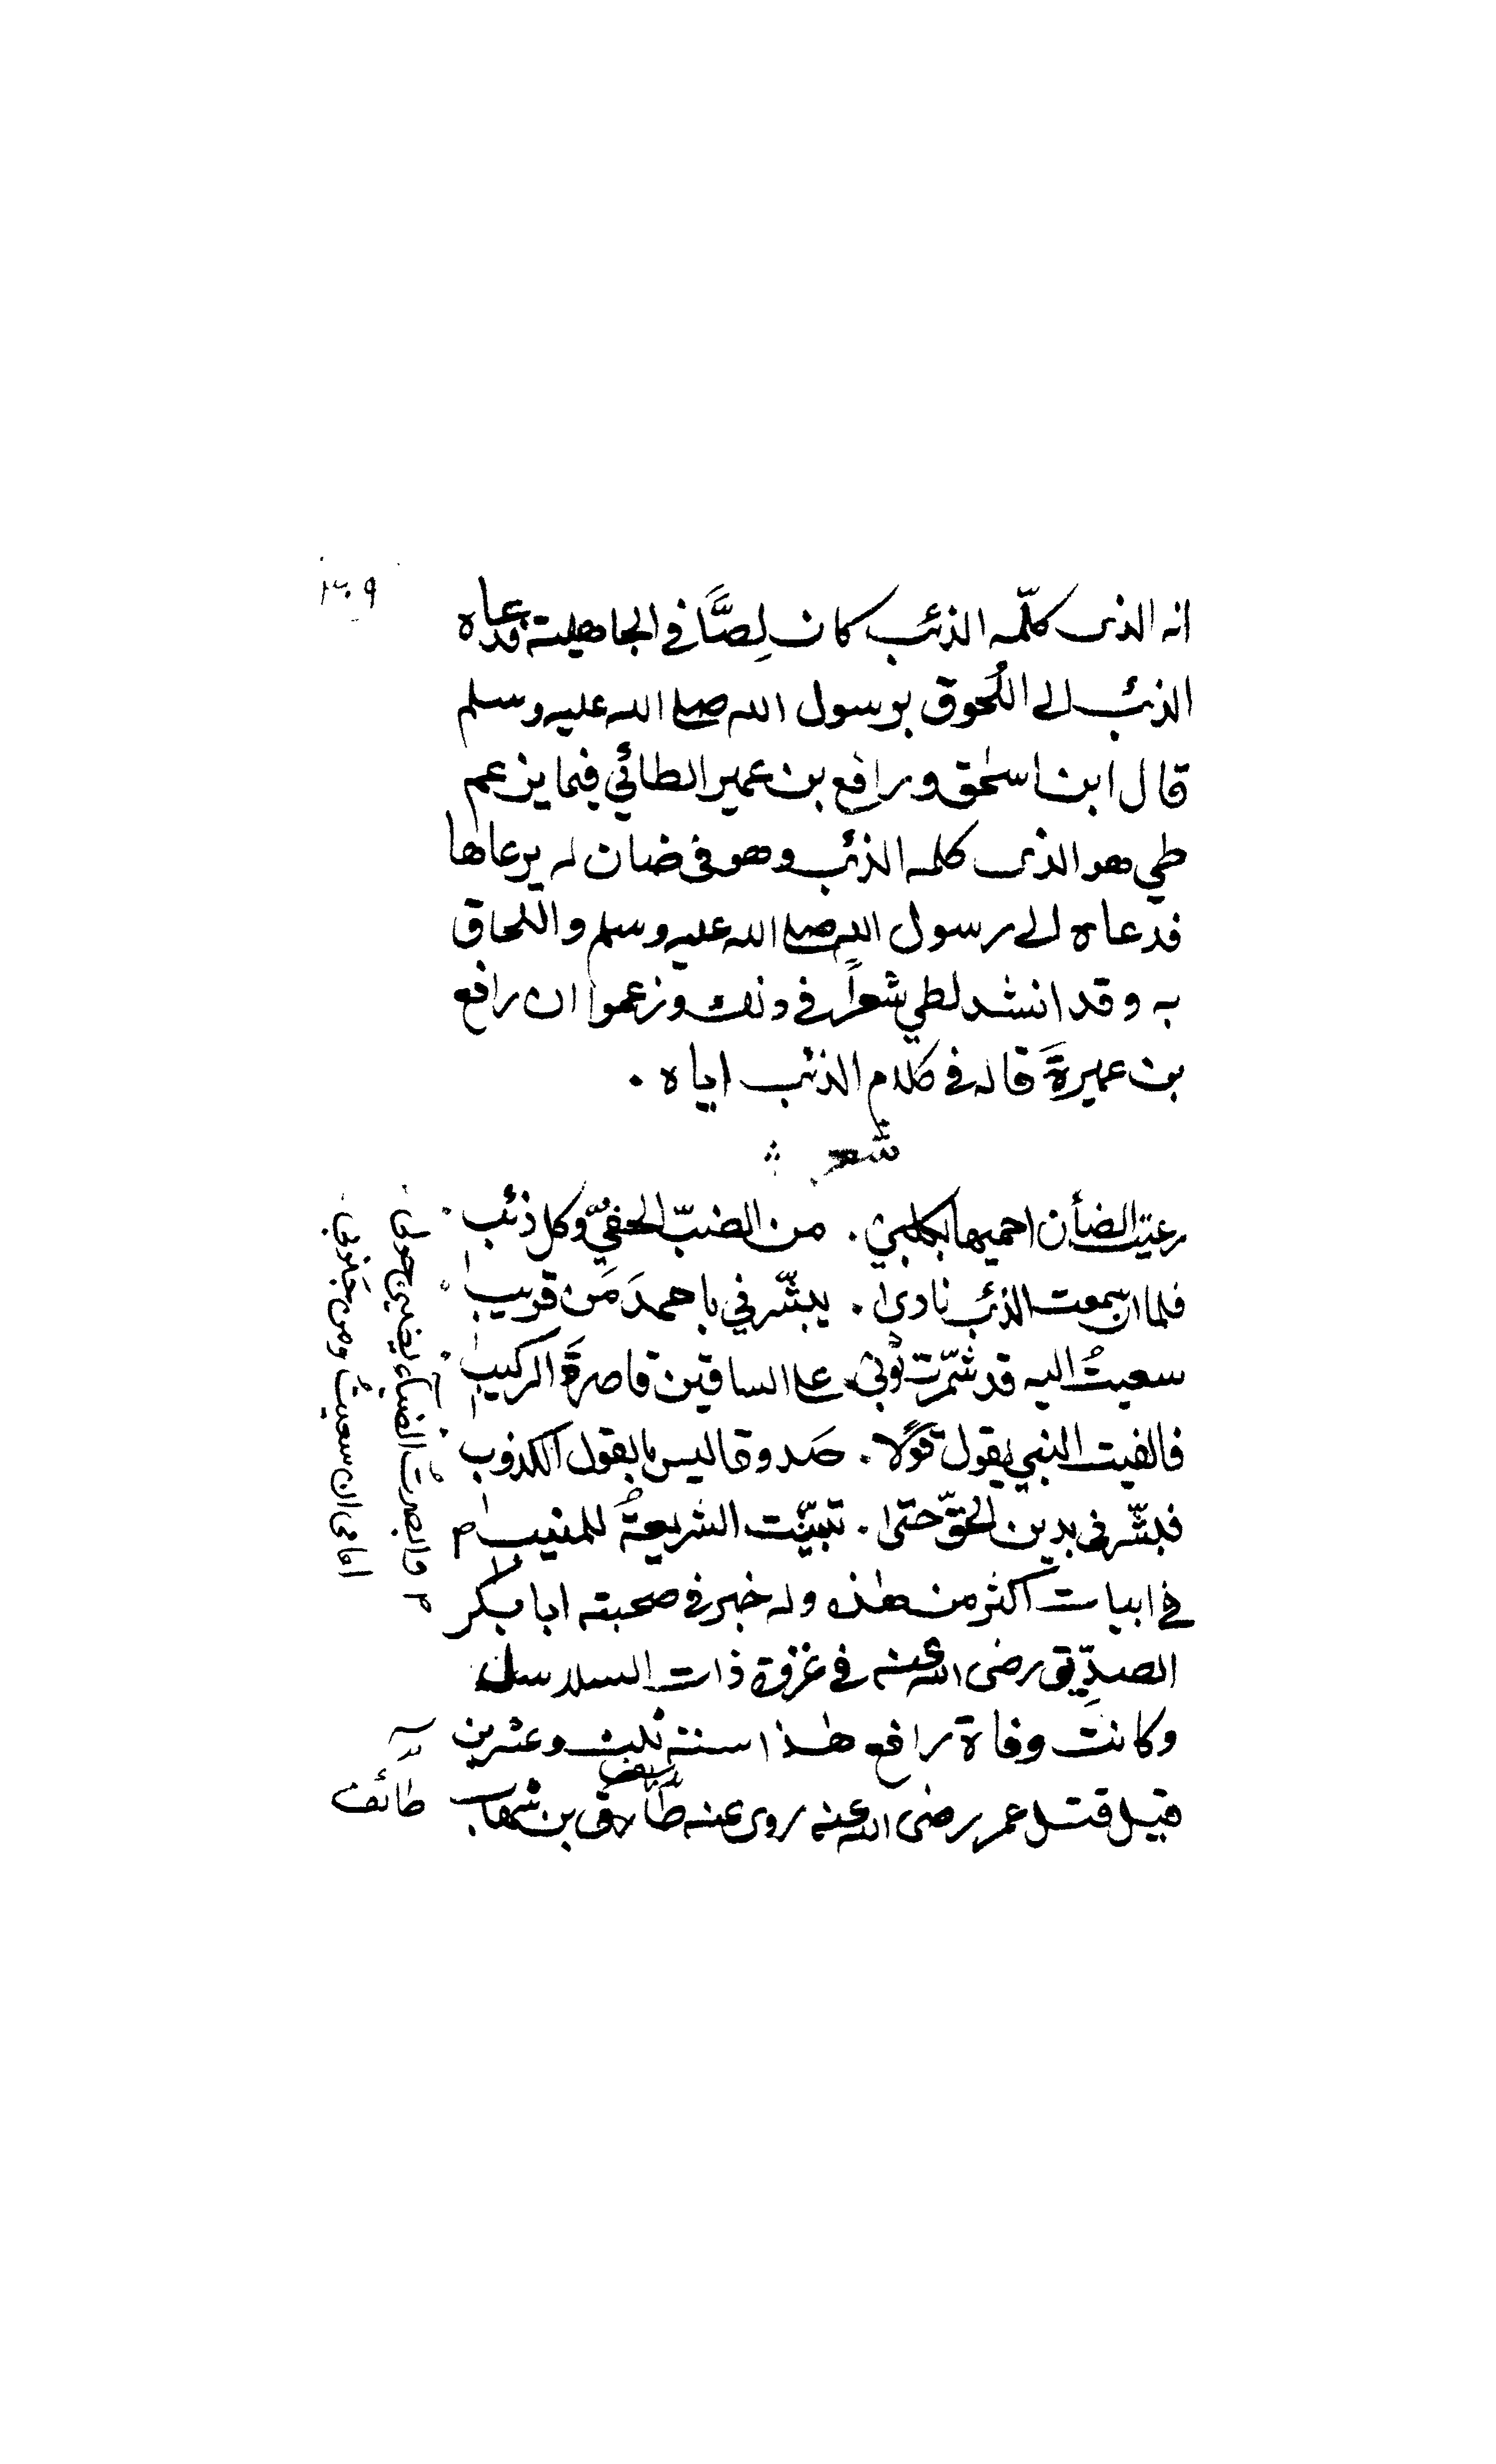 ٣٠٩
انه الذى كلّمه الذئب كان لِصًّا في الجاهلية فدعاه
الذئب الى اللُحوق برسول الله صلى الله عليه وسلم
قال ابن اسحٰق ورافع بن عمير الطائي فيما يزعم
طي هو الذى كلمه الذئب وهو فى ضان له يرعاها
فدعاه الى رسول الله صلى الله عليه وسلم واللحاق
به وقد انشد لطي شعراً في ذلك وزعموا ان رافع
بن عميرةَ قاله فى كلام الذئب اياه .
شعر
رعيت الضأن احميها بكلبي . من الضبّ الخفيّ وكل ذئب .
فلما ان سمعت الذئب نادى . يبشّرني باحمدَ مَن قريب
سعيتُ اليه قد شمّرت ثوبي . على الساقين قاصرةَ الركيب
فالفيت النبي يقول قولًا . صَدوقا ليس بالقول الكذوب
فبشّرنى بدين الحقّ حتى . تبيّنت الشريعةُ للمنيب م
في ابيات اكثر من هذه وله خبر فى صحبته ابا بكر
الصدّيق رضى الله عنه في غزوة ذات السلاسل
وكانت وفاة رافع هذا سنة ثلث وعشرين
قبل قتل عمر رضى الله عنه روى عنه طارق بن شهاب
م وابصرتُ الضياء يضيئ حولى .
امامى ان سعيتُ ومن جَنوبى .
طائف